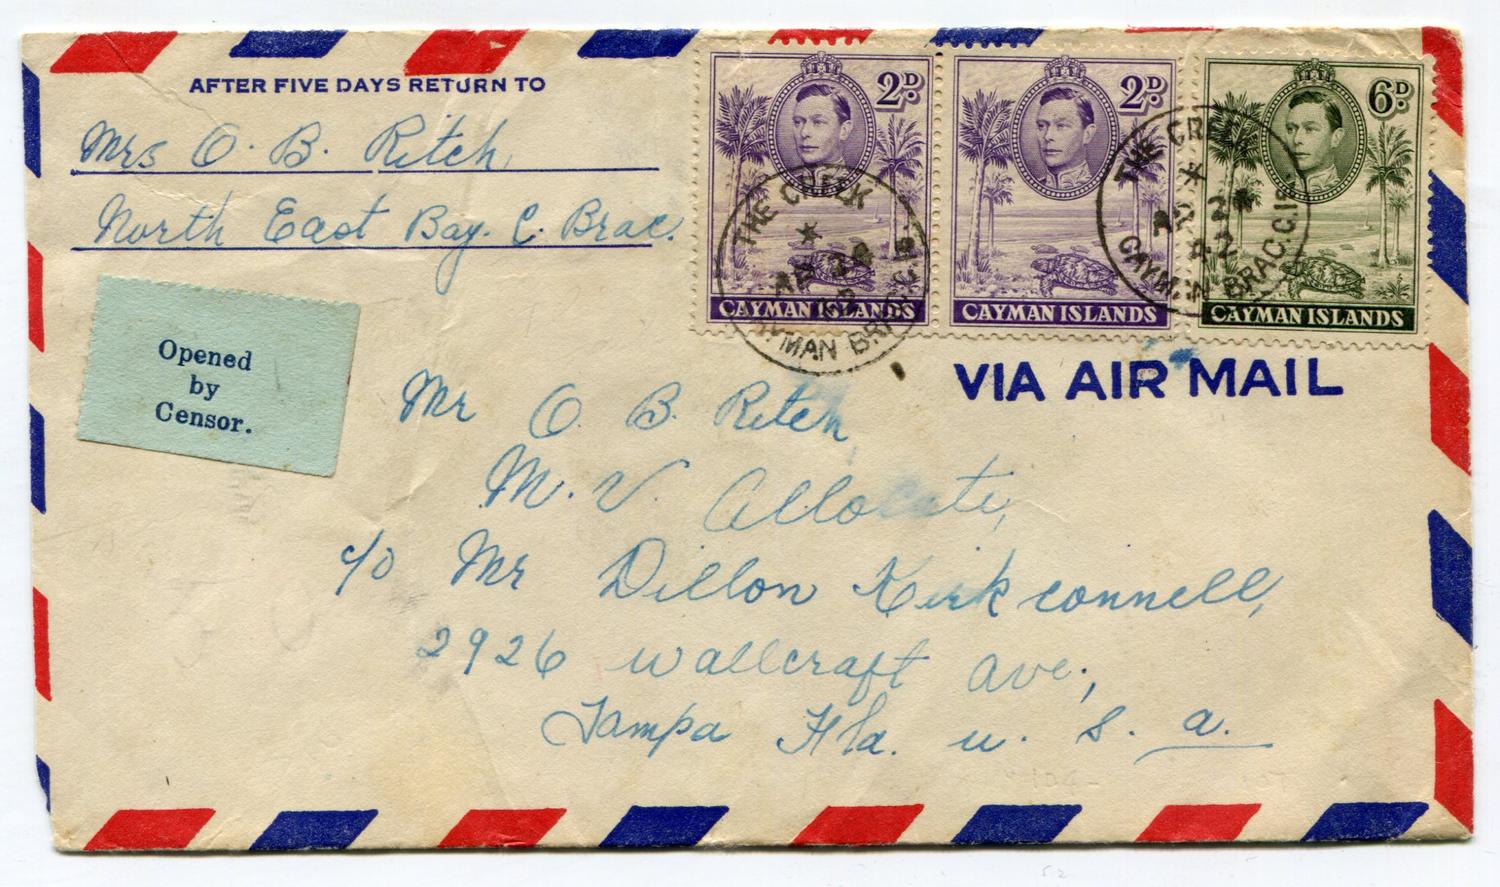 AFTER FIVE DAYS RETURN TO
Mrs O. B. Ritch
North East Bay. C. Brac.
2D.
2D.
6D.
CAYMAN ISLANDS
CAYMAN ISLANDS
CAYMAN ISLANDS
THE CREEK
CAYMAN BRAC
THE CR
42
CAYMAN BRAC.C.I.
VIA AIR MAIL
Opened
by
Censor.
Mr O. B. Ritch,
M. V. Allocate,
c/o Mr Dillon Kirkconnell,
2926 Wallcraft Ave.,
Tampa Fla. U. S. A.